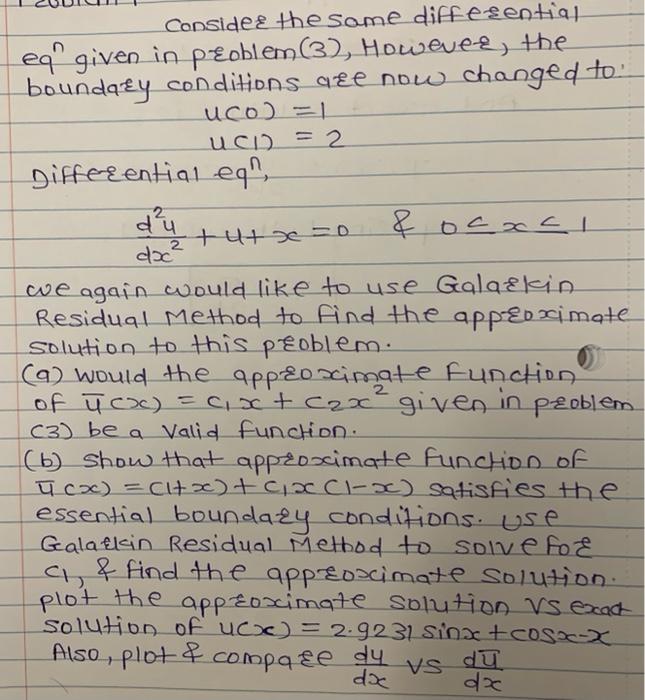 Consider the same differential
eqⁿ given in problem (3), However, the
boundary conditions are now changed to:
u(0) = 1
u(1) = 2
Differential eqⁿ,
d²u/dx² + u + x = 0 & 0 ≤ x ≤ 1
we again would like to use Galarkin
Residual Method to find the approximate
solution to this problem.
(a) would the approximate function
of ū(x) = c₁x + c₂x² given in problem
(3) be a valid function.
(b) show that approximate function of
ū(x) = (1+x) + c₁x(1-x) satisfies the
essential boundary conditions. use
Galarkin Residual Method to solve for
c₁, & find the approximate solution.
plot the approximate solution vs exact
solution of u(x) = 2.9231 sinx + cosx - x
Also, plot & compare du/dx vs dū/dx